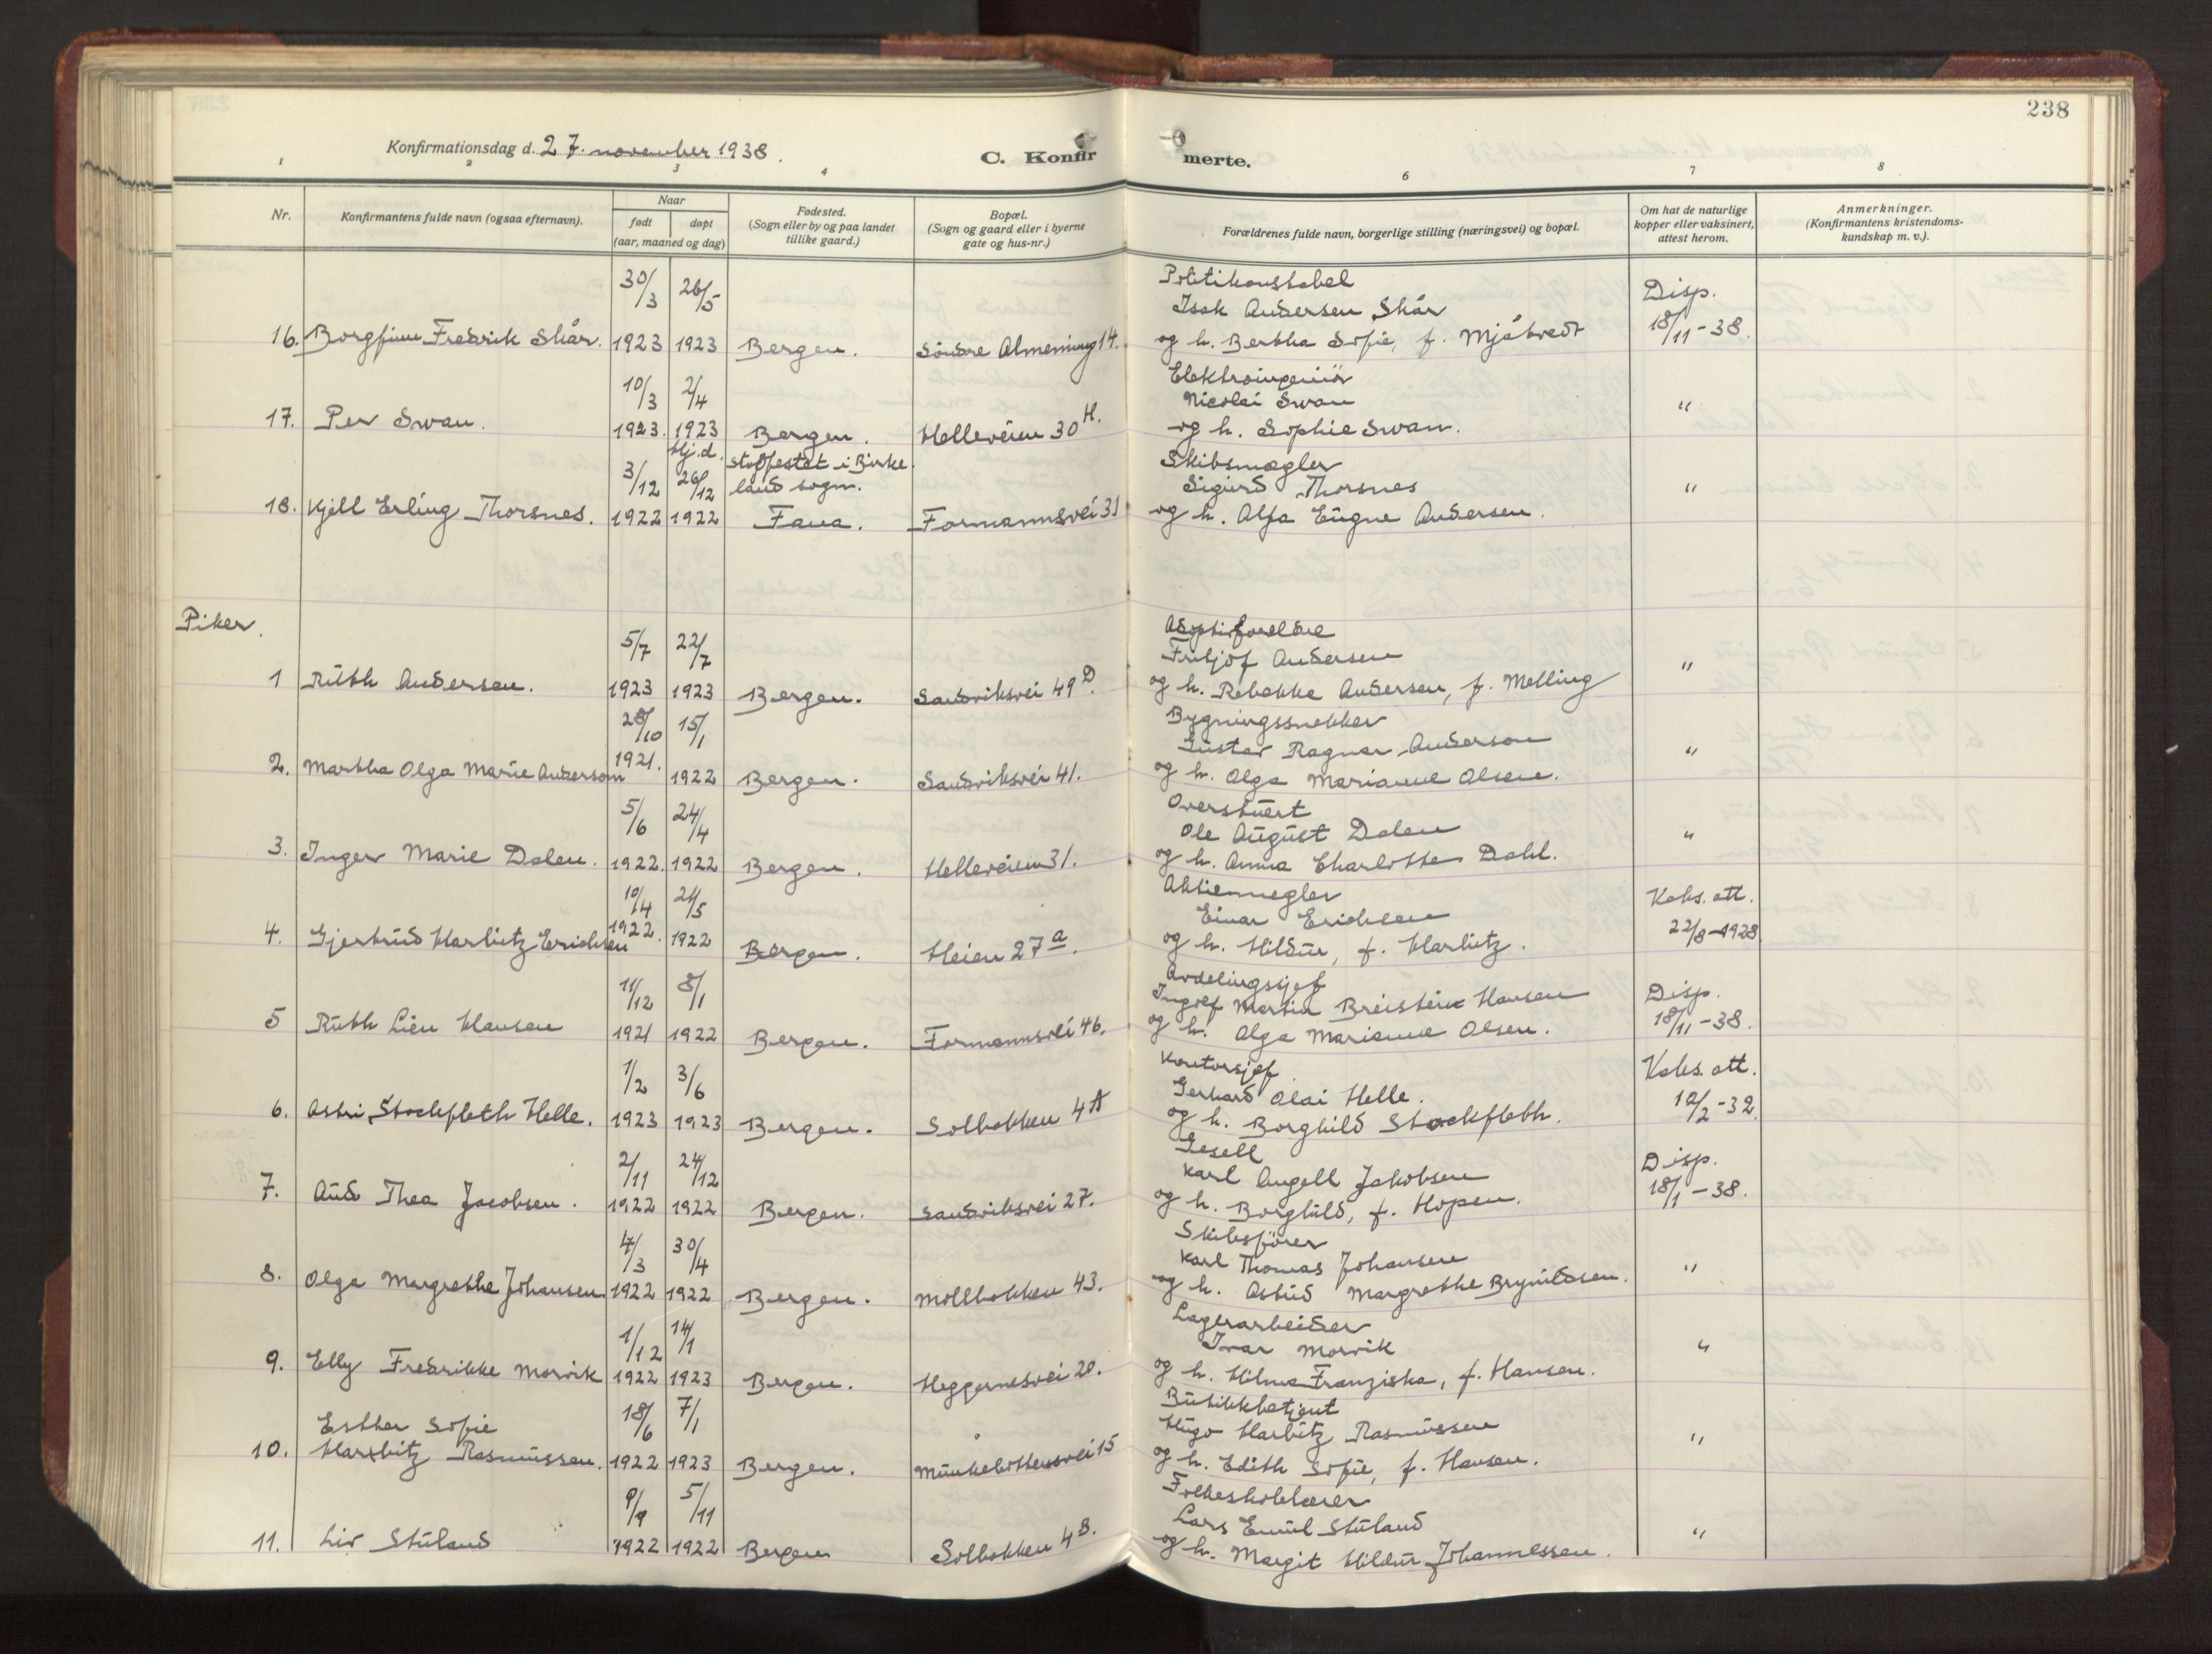 238
Konfirmationsdag d. 27. november 1938.
C. Konfirmerte.
1 2 3 4 6 7 8
Nr.
Konfirmantens fulde navn (ogsaa efternavn).
Naar
født døpt
(aar, maaned og dag)
Fødested.
(Sogn eller by og paa landet
tillike gaard.)
Bopæl.
(Sogn og gaard eller i byerne
gate og hus-nr.)
Forældrenes fulde navn, borgerlige stilling (næringsvei) og bopæl.
Om hat de naturlige
kopper eller vaksinert,
attest herom.
Anmerkninger.
(Konfirmantens kristendoms-
kundskap m. v.).
30/3 26/5 Politikonstabel Disp.
Isak Andersen Skår 18/11-38.
16. Borgfinn Fredrik Skår. 1923 1923 Bergen. Söndre Almenning 14. og h. Bertha Sofie, f. Mjåtvedt
10/3 2/4 Elektroingeniör
Nicolai Swan "
17. Per Swan. 1923. 1923 Bergen. Helleveien 30 H. og h. Sophie Swan.
hj.d. stadfestet i Birke Skibsmægler
3/12 26/12 land sogn. Sigurd Thorsnes "
18. Kjell Erling Thorsnes. 1922 1922 Fana. Formannsvei 31 og h. Alfa Eugne Andersen.
Piker.
5/7 22/7 Adoptivforeldre
Fritjof Andersen "
1 Ruth Andersen. 1923 1923 Bergen. Sandviksvei 49 D. og h. Rebekka Andersen, f. Melling
28/10 15/1 Bygningssnekker
1921. Gustav Ragnar Anderson "
2. Martha Olga Marie Anderson 1922 Bergen. Sandviksvei 41. og h. Olga Marianne Olsen.
5/6 24/4 Overstuert
Ole August Dalen "
3. Inger Marie Dalen. 1922. 1922 Bergen. Helleveien 31. og h. Anna Charlotte Dahl.
10/4 21/5 Aktiemegler Vaks. att.
1922. Einar Erichsen 22/8-1928
4. Gjertrud Harbitz Erichsen 1922 Bergen. Heien 27 a. og h. Hildur, f. Harbitz.
11/12 8/1 Avdelingssjef Disp.
Ingolf Martin Breistein Hansen 18/11-38.
5 Ruth Lien Hansen 1921 1922 Bergen. Formannsvei 46. og h. Olga Marianne Olsen.
1/2 3/6 Kontorsjef Vaks. att.
Gerhard Olai Helle. 12/2-32.
6. Astri Stockfleth Helle. 1923 1923 Bergen. Solbakken 4 A og h. Borghild Stockfleth.
2/11 24/12 Gesell Disp.
Karl Angell Jakobsen 18/1-38.
7. Aud Thea Jacobsen. 1922 1922 Bergen. Sandviksvei 27. og h. Borghild, f. Hopen.
4/3 30/4 Skibsförer
Karl Thomas Johansen "
8. Olga Margrethe Johansen 1922 1922 Bergen. Möllbakken 43. og h. Astrid Margrethe Brynildsen.
1/12 14/1 Lagerarbeider
Ivar Morvik "
9. Elly Fredrikke Morvik 1922 1923 Bergen. Heggernesvei 20. og h. Hilma Franziska, f. Hansen.
Esther Sofie 18/6 7/1 Butikkbetjent
Hugo Harbitz Rasmussen "
10. Harbitz Rasmussen. 1922 1923 Bergen. Munkebottensvei 15 og h. Edith Sofie, f. Hansen.
9/9 5/11 Folkeskolelærer
Lars Emil Stuland "
11. Liv Stuland 1922 1922 Bergen Solbakken 4 B. og h. Margit Hildur Johannessen.